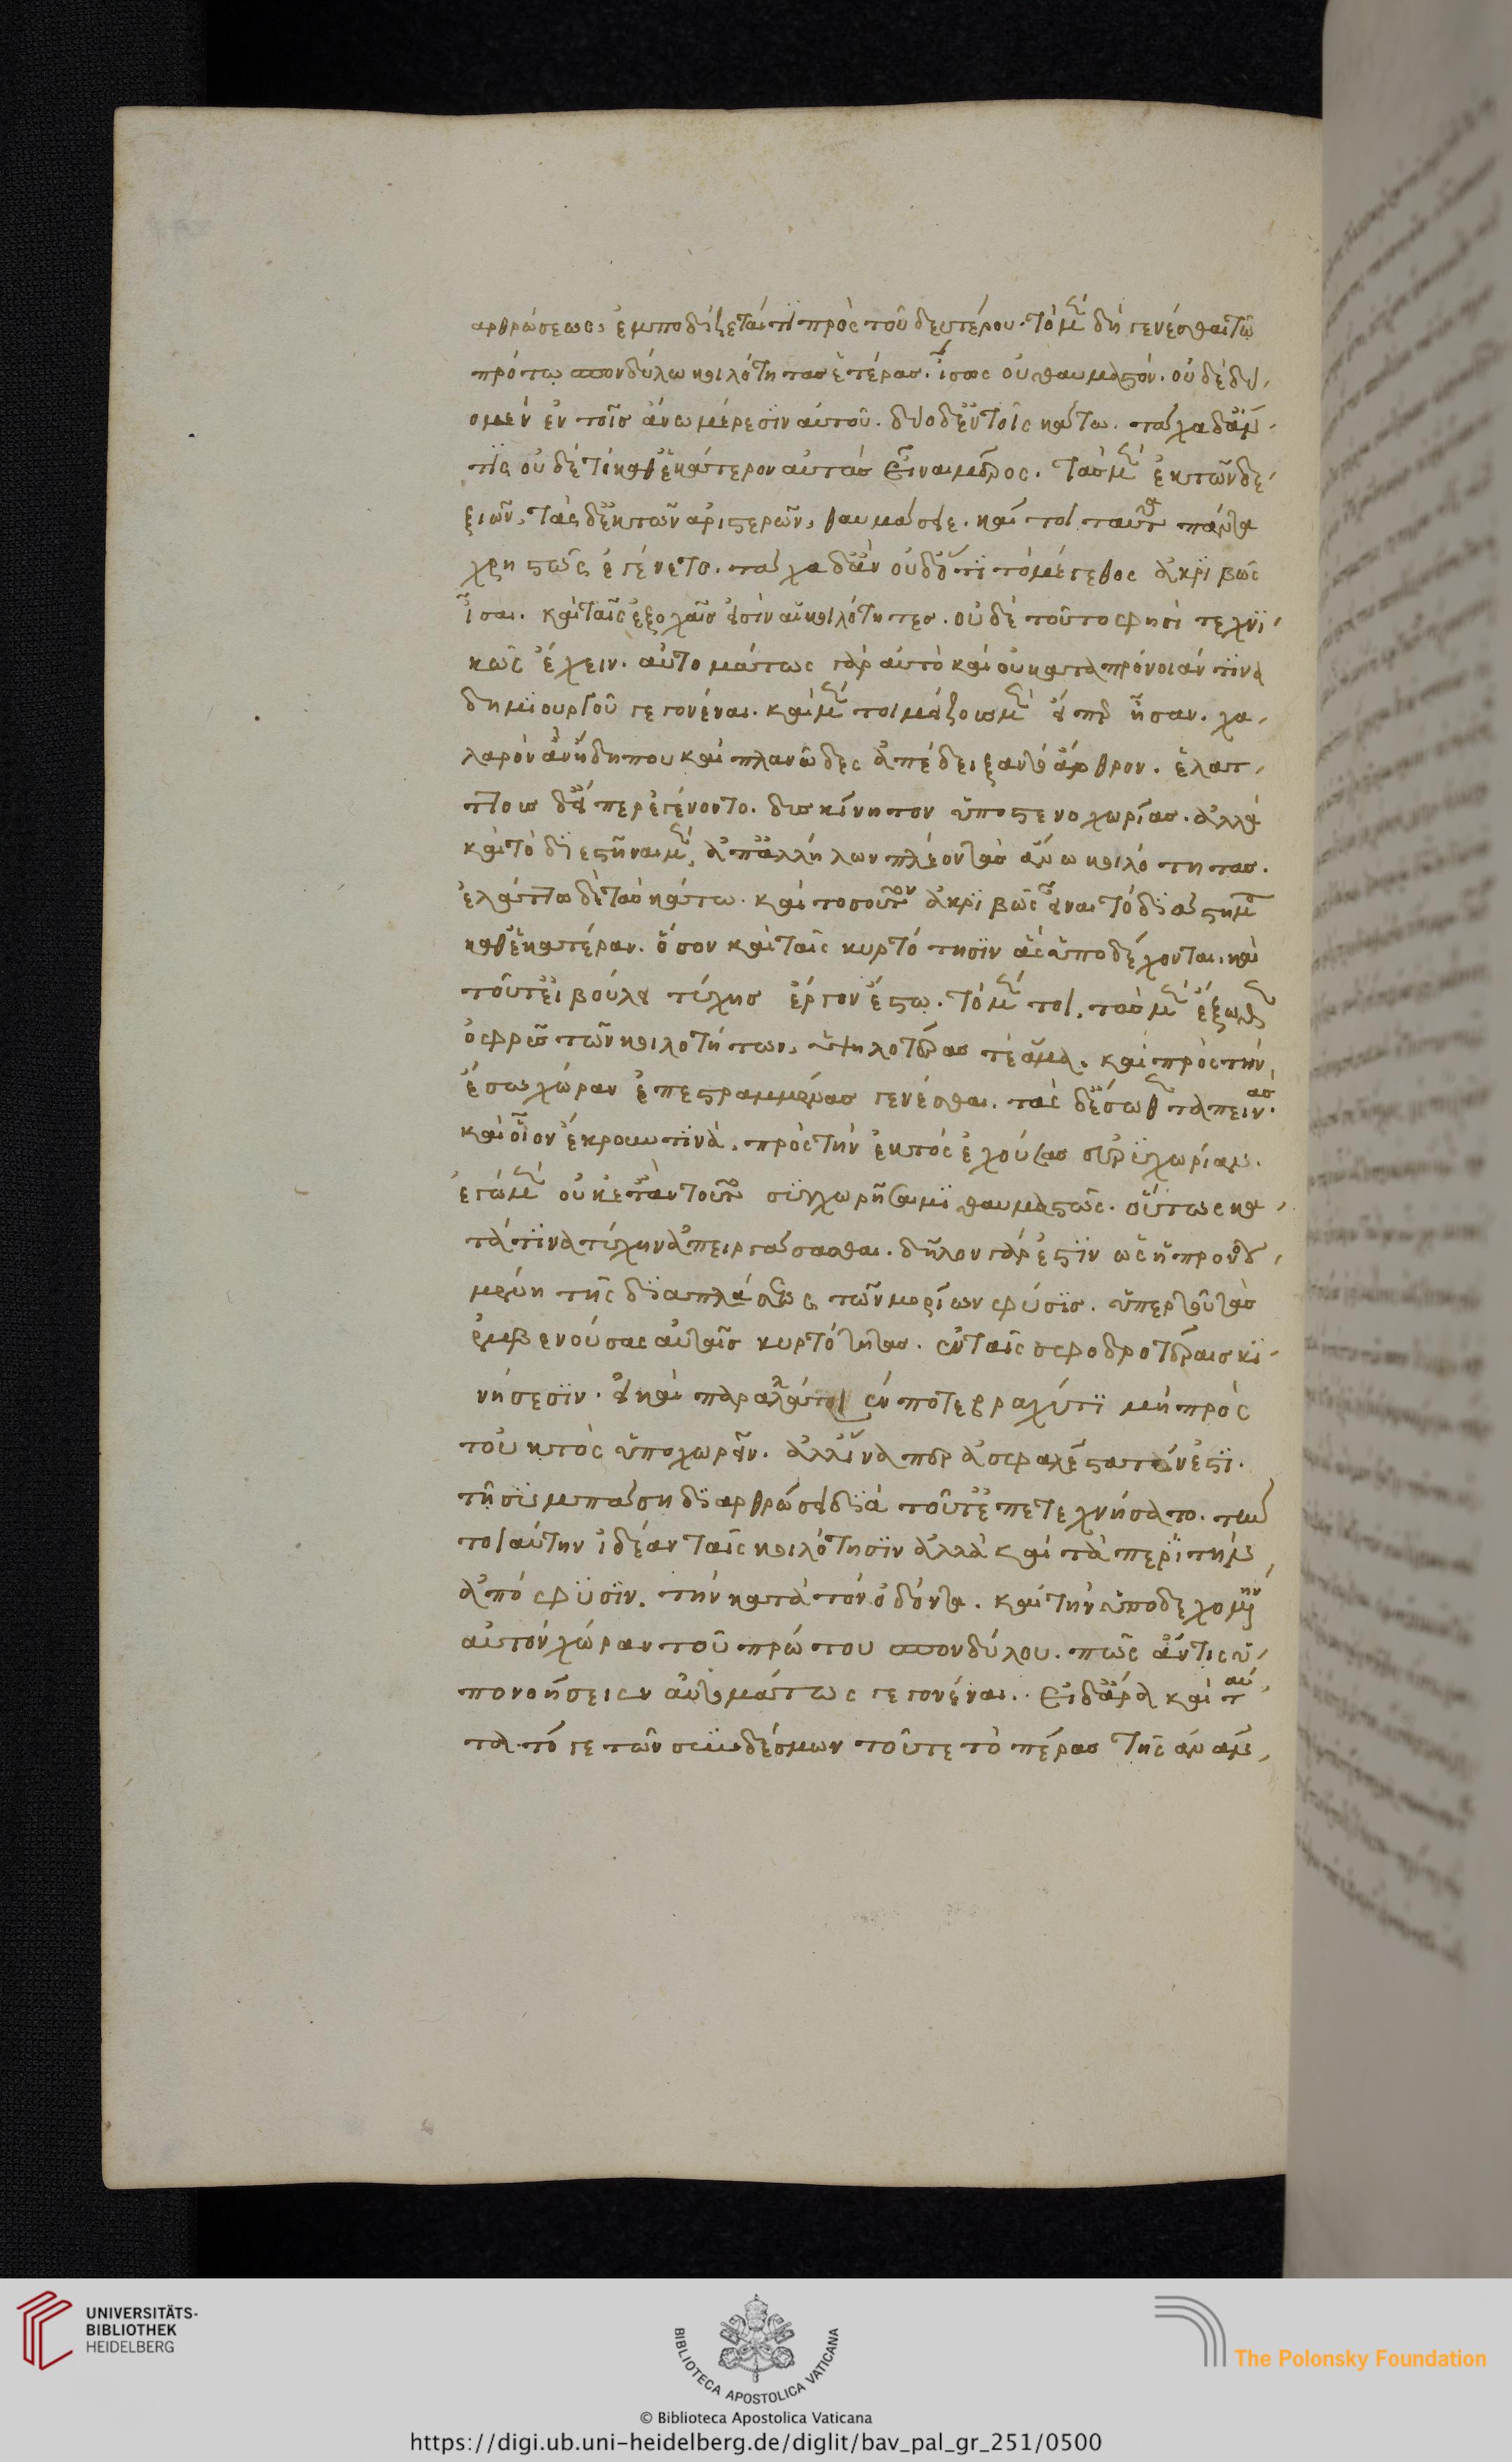 αρθρώσεως, ἐμποδίζεταί τι πρὸς τοῦ δευτέρου. τὸ μὲν δὴ γενέσθαι τῶ
πρώτω σπονδύλω κοιλότητας ἑτέρας. ἴσως οὐ θαυμαστόν. οὐδὲ δύ-
ο μὲν ἐν τοῖς ἄνω μέρεσιν αὐτοῦ. δύο δ' ἐν τοῖς κάτω. τάχα δ' ἄν
τις οὐδὲ τὸ καθ' ἑκάτερον αὐτὰς εἶναι μέρος. τὰς μὲν ἐκ τῶν δε-
ξιῶν, τὰς δ' ἐκ τῶν ἀριστερῶν, θαυμάσειε. καίτοι ταῦτα πάντα
χρηστῶς ἐγένετο. τάχα δ' ἂν οὐδ' ὅτι τὸ μέγεθος ἀκριβῶς
ἴσαι. καὶ ταῖς ἐξοχαῖς εἰσὶν αἱ κοιλότητες. οὐδὲ τοῦτο φησὶ τεχνι-
κῶς ἔχειν. αὐτομάτως γὰρ αὐτὸ καὶ οὐ κατὰ πρόνοιάν τινα
δημιουργοῦ γεγονέναι. καὶ μέντοι μείζους μὲν εἴπερ ἦσαν. χα-
λαρὸν ἂν ἤδη που καὶ πλανῶδες ἀπέδειξαν τὸ ἄρθρον. ἐλάτ-
τους δ' εἴπερ ἐγένοντο. δυσκίνητον ὑπὸ στενοχωρίας. ἀλλὰ
καὶ τὸ διεστῆναι μὲν, ἀπ' ἀλλήλων πλέον τὰς ἄνω κοιλότητας.
ἐλάττω δὲ τὰς κάτω. καὶ τοσοῦτον ἀκριβῶς εἶναι τὸ διάστημα
καθ' ἑκατέραν. ὅσον καὶ ταῖς κυρτότησιν ἃς ὑποδέχονται. καὶ
τοῦτ' εἰ βούλει τύχης ἔργον ἔστω. τὸ μέντοι, τὰς μὲν ἔξωθεν
ὀφρῦς τῶν κοιλοτήτων, ὑψηλοτέρας τὲ ἅμα. καὶ πρὸς τὴν
ἔσω χώραν ἐπεστραμμένας γενέσθαι. τὰς δ' ἔσωθεν ταπεινάς.
καὶ οἷον ἔκρουν τινὰ. πρὸς τὴν ἐκτὸς ἐχούσας εὐρυχωρίαν.
ἐγὼ μὲν οὐκέτ' ἂν τοῦτο συγχωρήσαιμι θαυμαστῶς. οὕτως κα-
τά τινα τύχην ἀπειργάσασθαι. δῆλον γάρ ἐστιν ὡς ἡ προνου-
μένη τῆς διαπλάσεως τῶν μορίων φύσις. ὑπὲρ τοῦ τὰς
ἐμβαινούσας αὐταῖς κυρτότητας. ἐν ταῖς σφοδροτέραις κι-
νήσεσιν. εἰ καὶ παραλλάττοιέν ποτε βραχύ τι μὴ πρὸς
τοὐκτὸς ὑποχωρεῖν. ἀλλ' ἵνα περ ἀσφαλέστατόν ἐστι.
τῆ συμπάση διαρθρώσει διὰ τοῦτ' ἐπετεχνήσατο. τὴν
τοιαύτην ἰδέαν ταῖς κοιλότησιν ἀλλὰ καὶ τὰ περὶ τὴν
ἀπόφυσιν. τὴν κατὰ τὸν ὀδόντα. καὶ τὴν ὑποδεχομένην
αὐτὸν χώραν τοῦ πρώτου σπονδύλου. πῶς ἄν τις ὑ-
πονοήσειεν αὐτομάτως γεγονέναι. εἰ δ' ἄρα καὶ ταῦ-
τα. τό γε τῶν συνδέσμων τοῦτε τὸ πέρας τῆς ἀνάν-
UNIVERSITÄTS-
BIBLIOTHEK
HEIDELBERG
BIBLIOTECA APOSTOLICA VATICANA
The Polonsky Foundation
© Biblioteca Apostolica Vaticana
https://digi.ub.uni-heidelberg.de/diglit/bav_pal_gr_251/0500